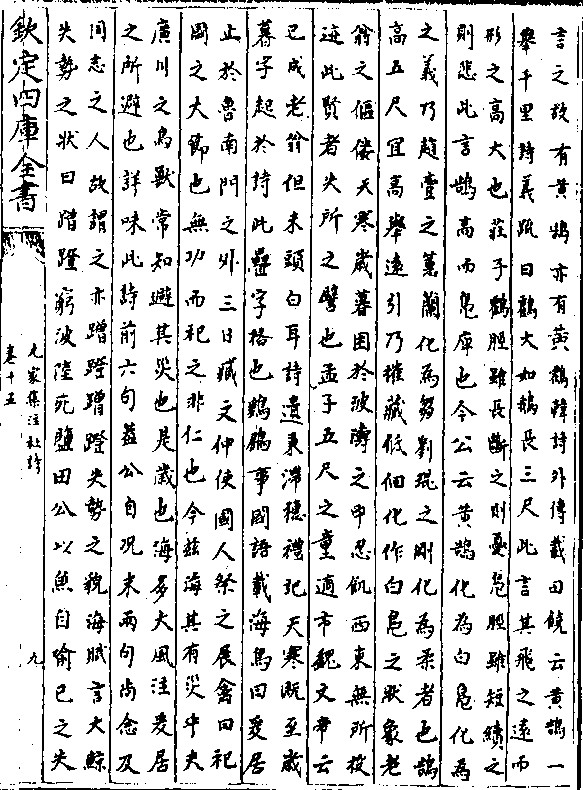 言之故有黄鵠亦有黄鶴韓詩外傳載田饒云黄鵠一
舉千里詩義疏曰鸛大如鵠長三尺此言其飛之遠而
形之高大也莊子鶴脛雖長斷之則憂鳬脛雖短續之
則悲此言鵠高而鳬庳也今公云黄鵠化為白鳬化為
之義乃趙壹之蕙蘭化為芻劉琨之剛化為柔者也鵠
高五尺宜高舉遠引乃摧藏低佪化作白鳬之狀象老
翁之傴僂天寒歲暮困於波濤之中忍飢西東無所投
迹此賢者失所之譬也孟子五尺之童適市魏文帝云
已成老翁但未頭白耳詩遺秉滯穗禮記天寒既至歲
暮字起於詩此疊字格也鶢鶋事國語載海鳥曰爰居
止於魯南門之外三日臧文仲使國人祭之展禽曰祀
國之大節也無功而祀之非仁也今兹海其有災乎夫
廣川之鳥獸常知避其災也是歲也海多大風注爰居
之所避也詳味此詩前六句葢公自况末兩句尚念及
同志之人故謂之亦蹭蹬蹭蹬失勢之貌海賦言大鯨
失勢之狀曰蹭蹬窮波陸死鹽田公以魚自喻已之失
欽定四庫全書
九家集注杜詩
卷十五
九